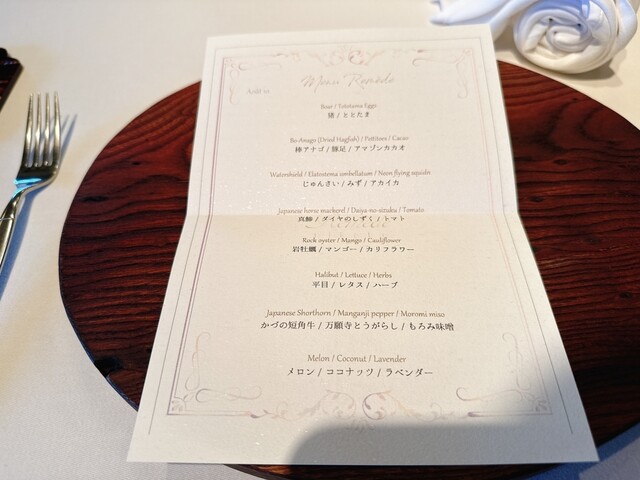 Menu Renkëdo
Boar / Tototama Eggs
猪 / ととたま
Bo-Anago (Dried Hagfish) / Pettitoes / Cacao
棒アナゴ / 豚足 / アマゾンカカオ
Watershield / Elatostema umbellatum / Neon flying squids
じゅんさい / みず / アカイカ
Japanese horse mackerel / Daiya-no-sizuku / Tomato
真鯵 / ダイヤのしずく / トマト
Rock oyster / Mango / Cauliflower
岩牡蠣 / マンゴー / カリフラワー
Halibut / Lettuce / Herbs
平目 / レタス / ハーブ
Japanese Shorthorn / Manganji pepper / Moromi miso
かづの短角牛 / 万願寺とうがらし / もろみ味噌
Melon / Coconut / Lavender
メロン / ココナッツ / ラベンダー